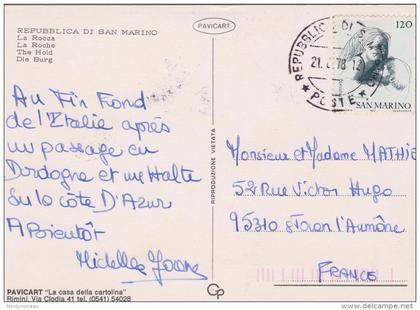 REPUBBLICA DI SAN MARINO
La Rocca
La Roche
The Hold
Die Burg
PAVICART
REPUBBLICA DI S
21. 78 12
POSTE
120
SAN MARINO
Au Fin Fond
de l'Italie après
un passage en
Dordogne et une Halte
Su la côte D'Azur
A Bientôt
Michelle
RIPRODUZIONE VIETATA
Monsieur et Madame MATHIE
52 Rue Victor Hugo
95310 St Ouen l'Aumône
FRANCE
PAVICART "La casa della cartolina"
Rimini, Via Clodia 41 tel. (0541) 54028
Gp
delcampe.net